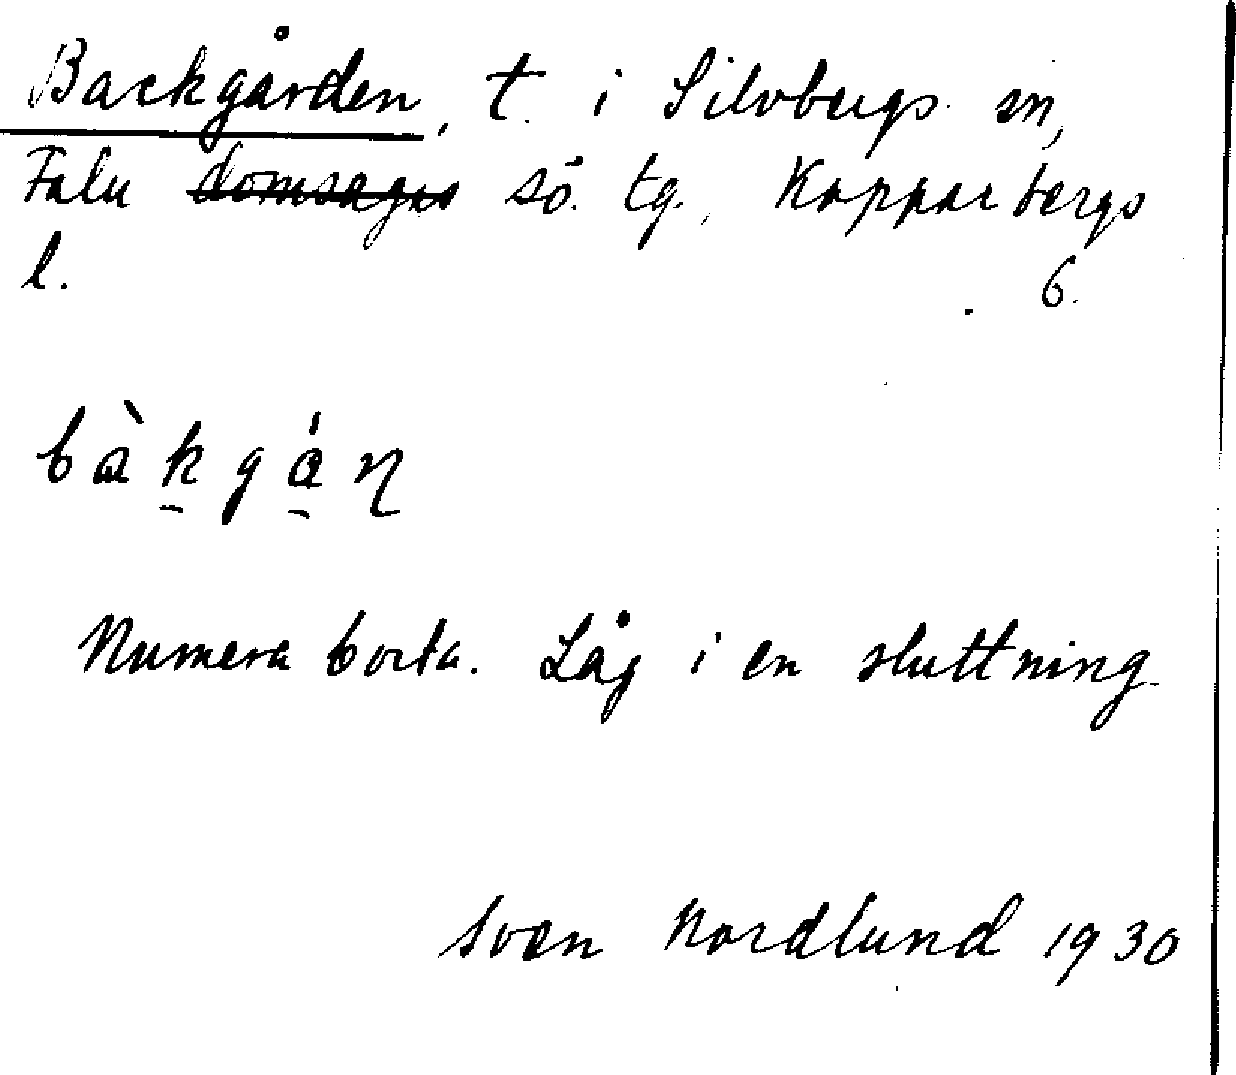 Backgården, t. i Silvbergs sn,
Falu domsagas sö. tg., Kopparbergs
l. 6.
bàk̠gá̠ɳ
Numera borta. Låg i en sluttning
Sven Nordlund 1930